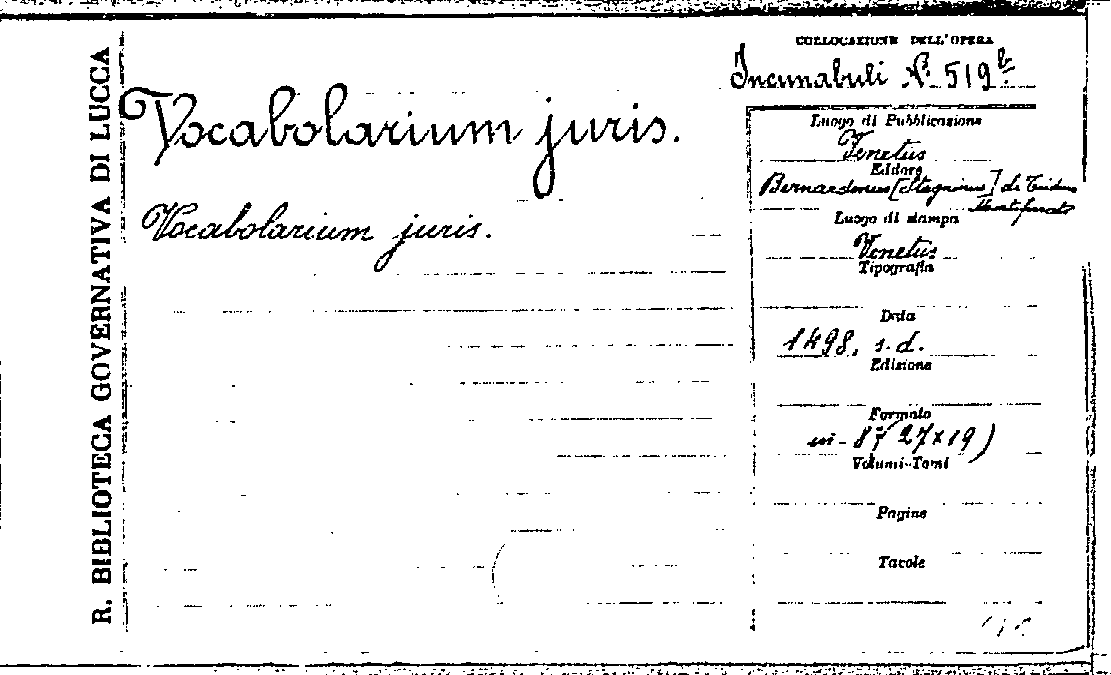 R. BIBLIOTECA GOVERNATIVA DI LUCCA
Vocabolarium juris.
Vocabolarium juris.
COLLOCAZIONE DELL'OPERA
Incunabuli N. 519 b
Luogo di Pubblicazione
Venetus
Editore
Bernardinus [Stagninus] de Tridino
Montferrato
Luogo di stampa
Venetus
Tipografia
Data
1498, s.d.
Edizione
Formato
in-8° (27x19)
Volumi-Tomi
Pagine
Tavole